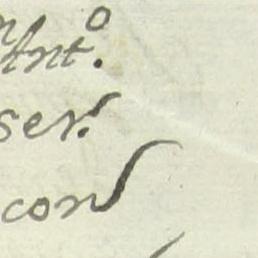 Antº.
ser.
con